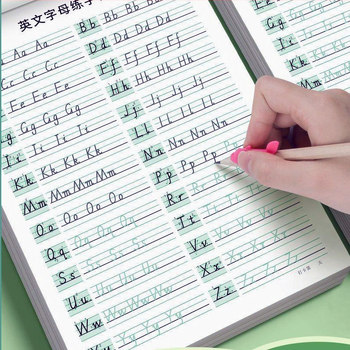 英文字母练字
Aa Aa
Cc Cc Cc
Ee Ee Ee
Gg Gg Gg Gg
Ii Ii Ii Ii
Kk Kk Kk Kk
Mm Mm Mm Mm
Oo Oo Oo Oo
Qq Qq Qq Qq
Ss Ss Ss Ss
Uu Uu Uu Uu
Ww Ww Ww Ww
Yy Yy Yy Yy
Bb Bb Bb Bb
Dd Dd Dd Dd
Ff Ff Ff Ff
Hh Hh Hh Hh
Jj Jj Jj Jj
Ll Ll Ll Ll
Nn Nn Nn Nn
Pp Pp Pp
Rr Rr
Tt Tt Tt Tt
Vv Vv Vv Vv
Xx Xx Xx Xx
Zz Zz Zz Zz
打卡第 天